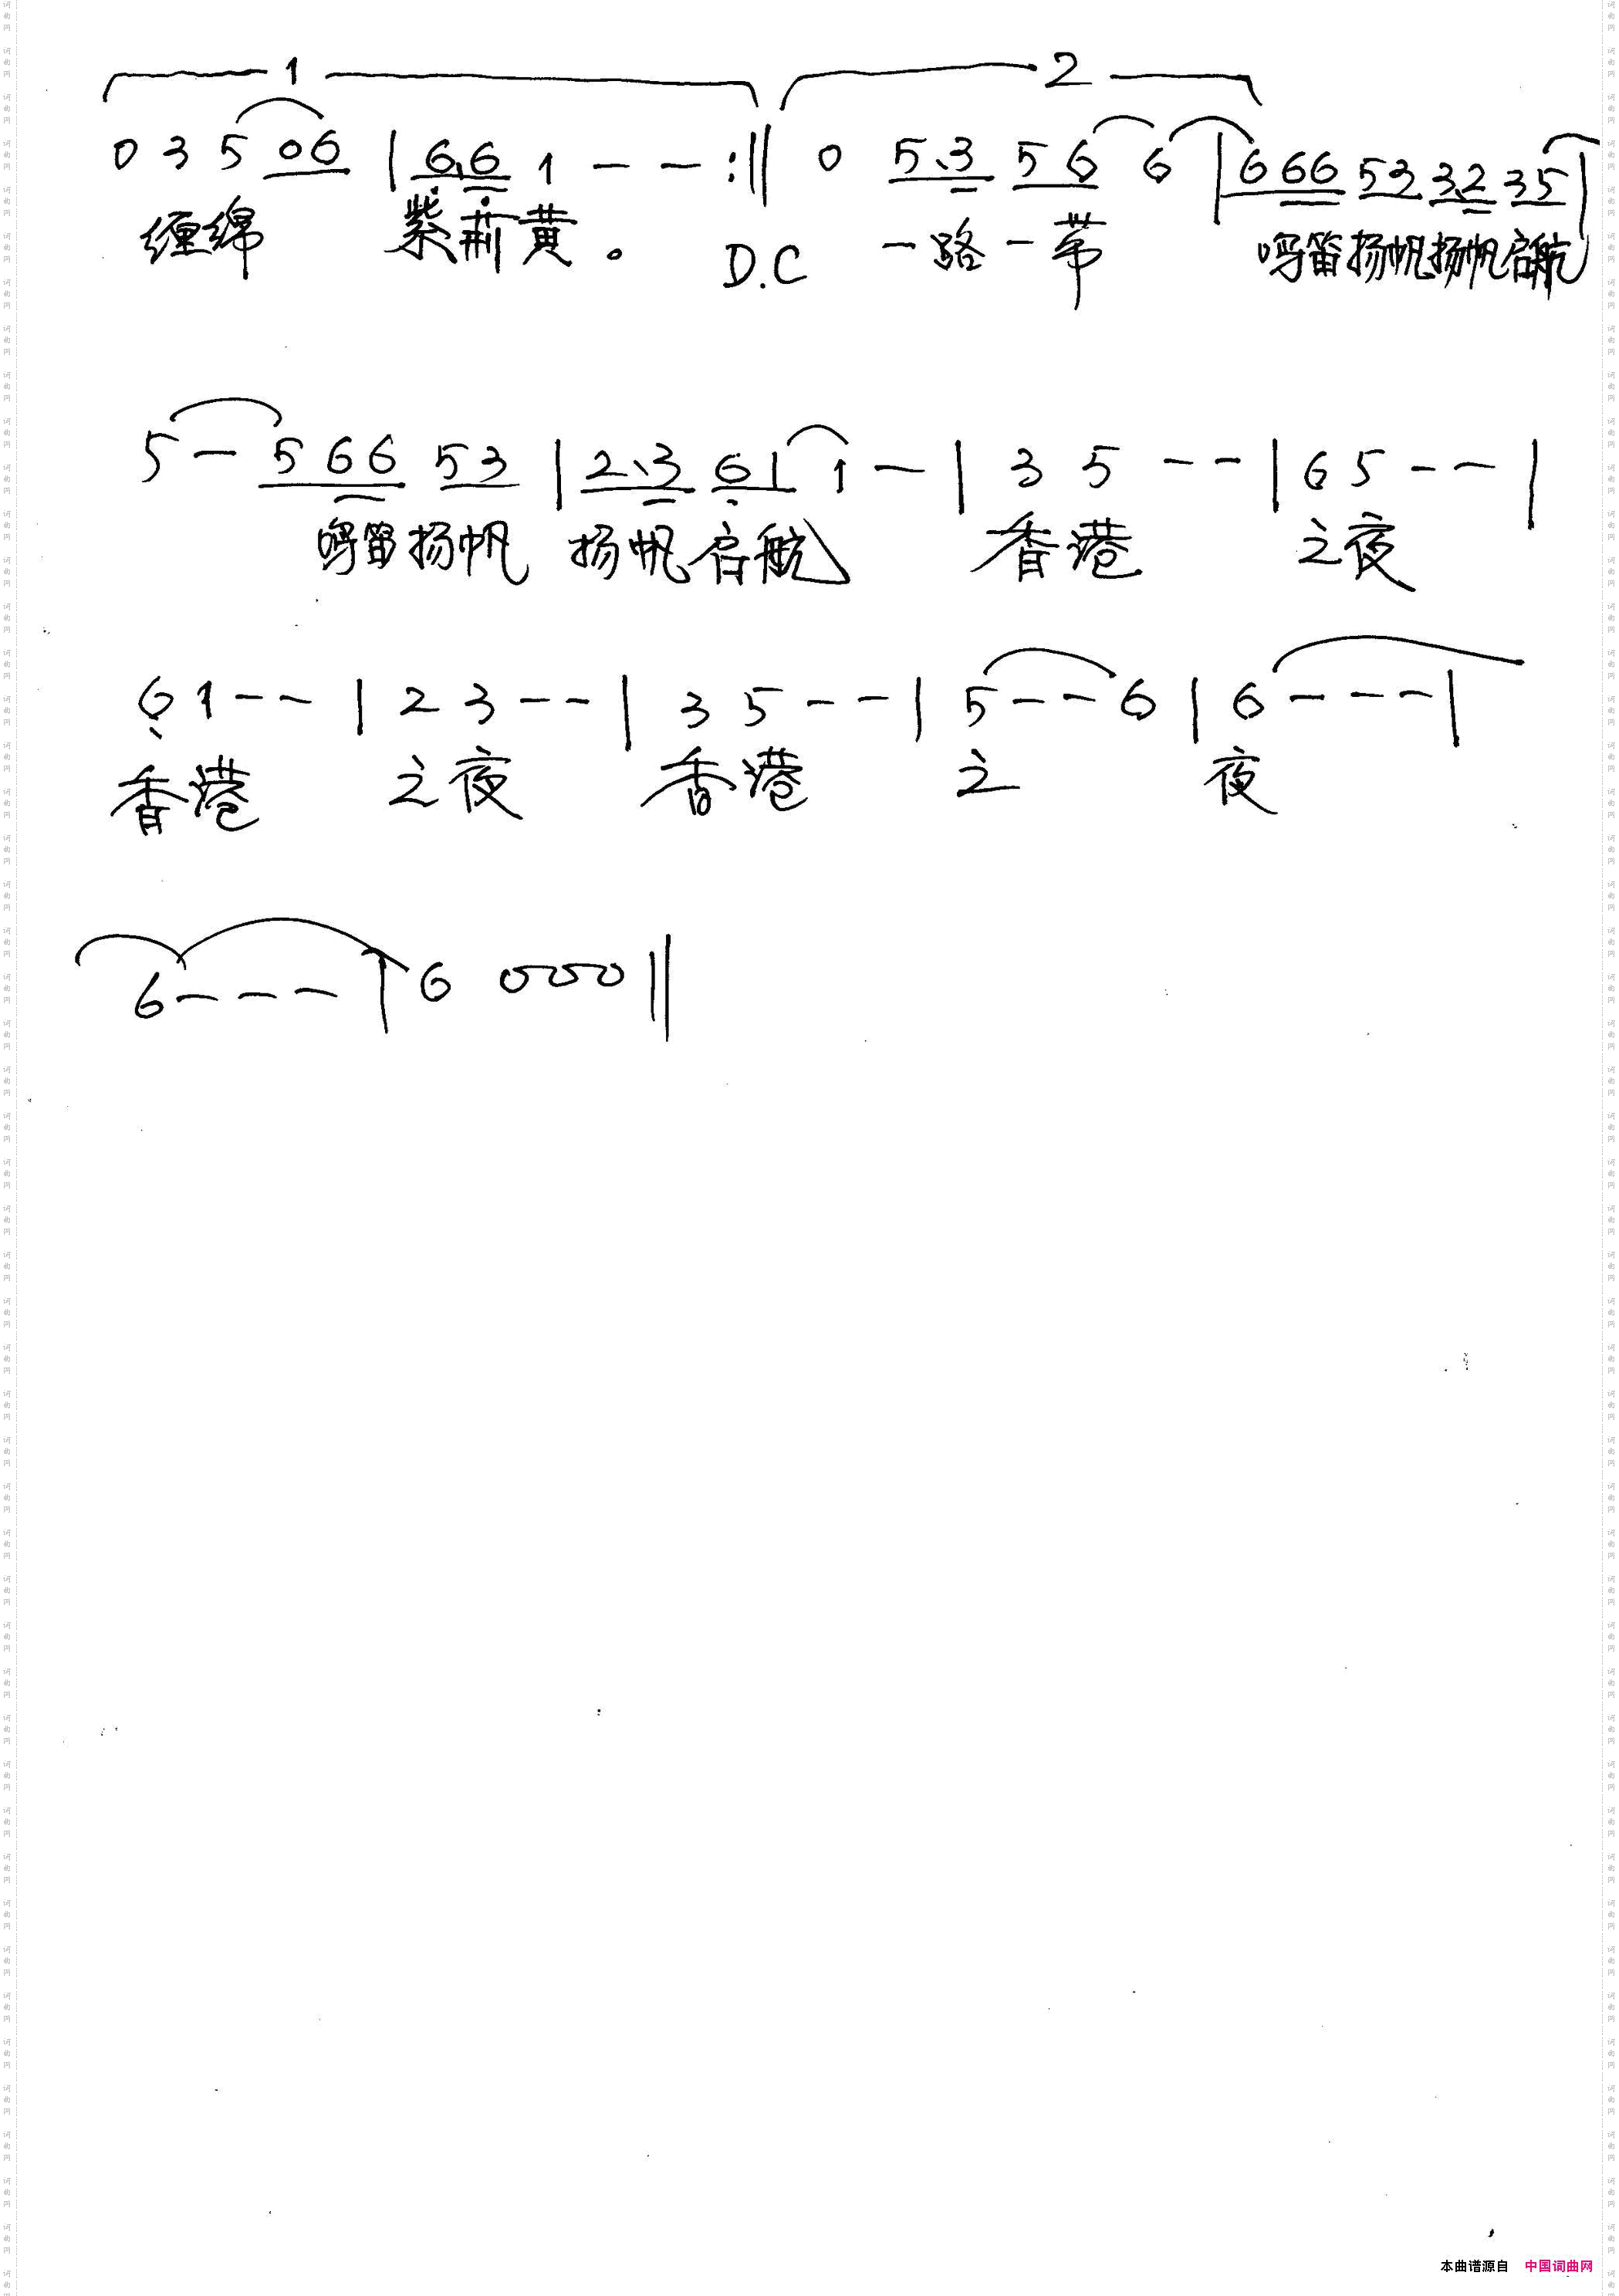 1 2
0 3 5 06 | 6.6 1 - - :‖ 0 5.3 56 6 | 666 53 3.2 35 |
缠绵 紫荊黄。 D.C 一路一带 鸣笛扬帆扬帆启航
5 - 566 53 | 2.3 61 1 - | 3 5 - - | 6 5 - - |
鸣笛扬帆 扬帆启航 香港 之夜
6 1 - - | 2 3 - - | 3 5 - - | 5 - - 6 | 6 - - - |
香港 之夜 香港 之 夜
6 - - - | 6 000 ‖
本曲谱源自 中国词曲网